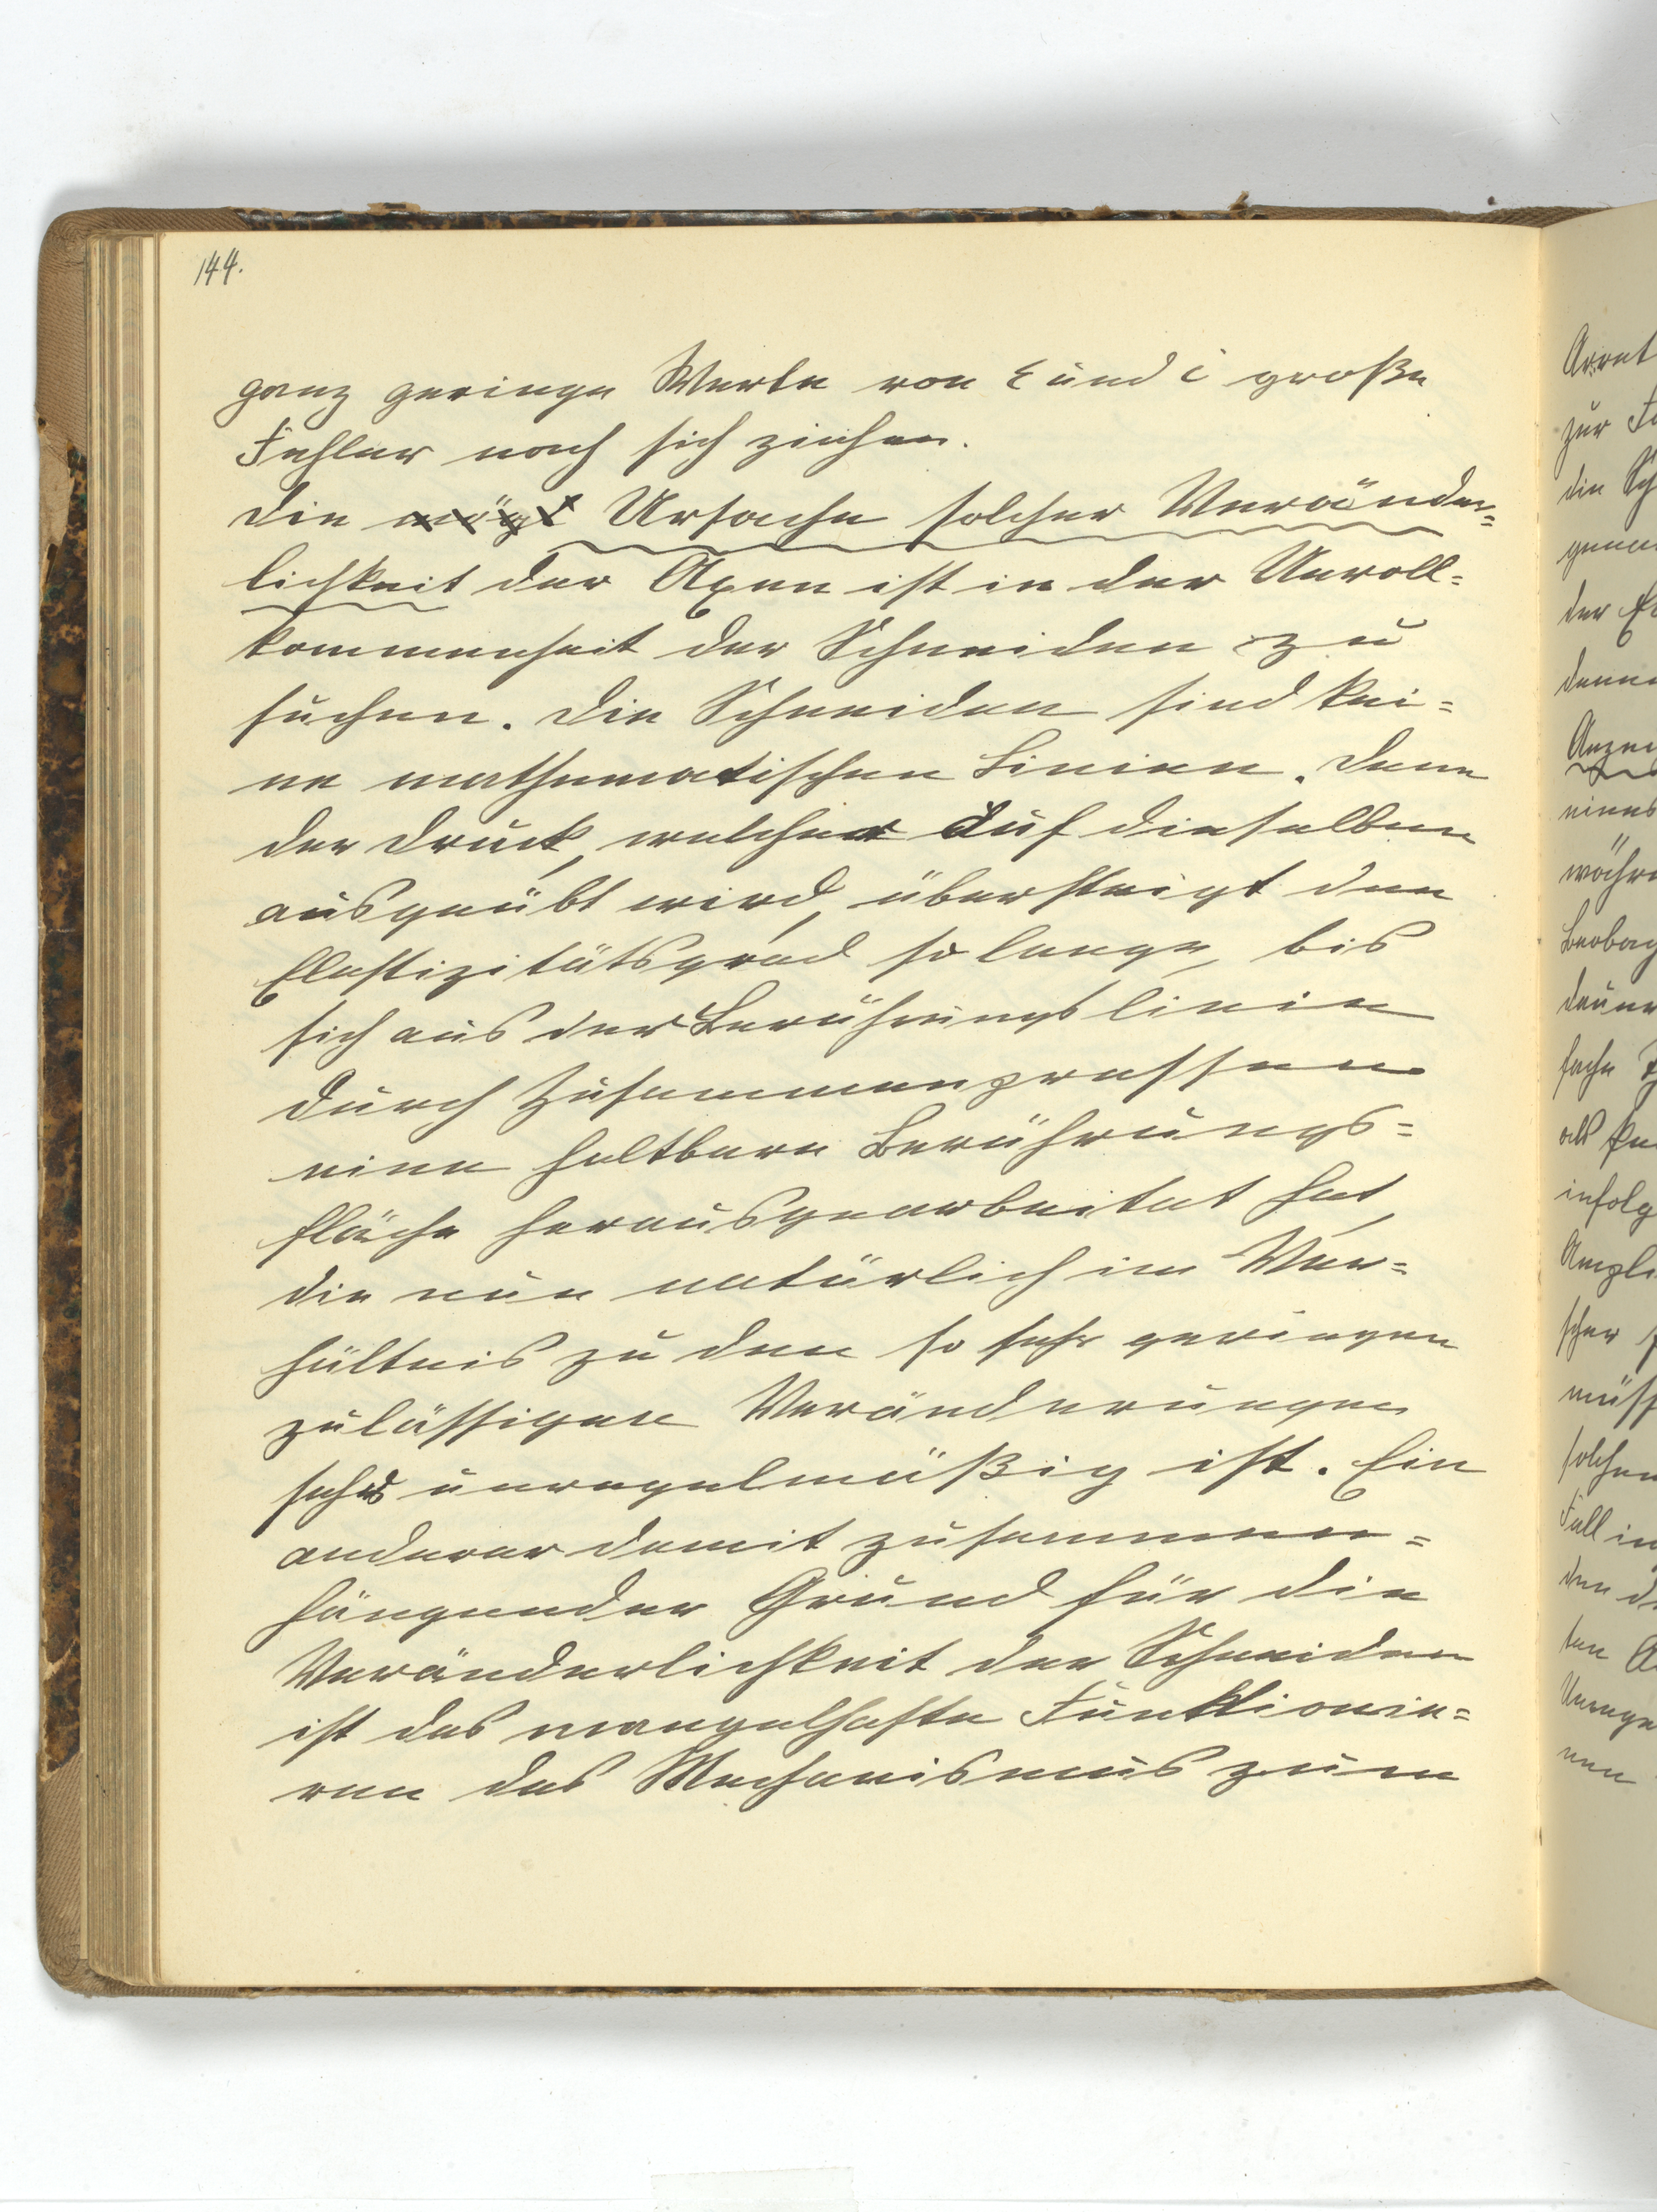 144.
ganz geringe Werte von ε und i große
Fehler nach sich ziehen.
Die Ursache solcher Veränder=
lichkeit der Axen ist in der Unvoll=
kommenheit der Schneiden zu
suchen. Die Schneiden sind kei=
ne mathematischen Linien. Denn
der Druck, welcher auf dieselben
ausgeübt wird, übersteigt den
Elastizitätsgrad so lange, bis
sich aus der Berührungslinie
durch Zusammenpressen
eine haltbare Berührungs=
fläche herausgearbeitet hat,
die nun natürlich im Ver=
hältnis zu den so sehr geringen
zulässigen Veränderungen
sehr unregelmäßig ist. Ein
anderer damit zusammen=
hängender Grund für die
Veränderlichkeit der Schneiden
ist das mangelhafte Funktionie=
ren des Mechanismus zum
zur
die
der
eines
als
infolg